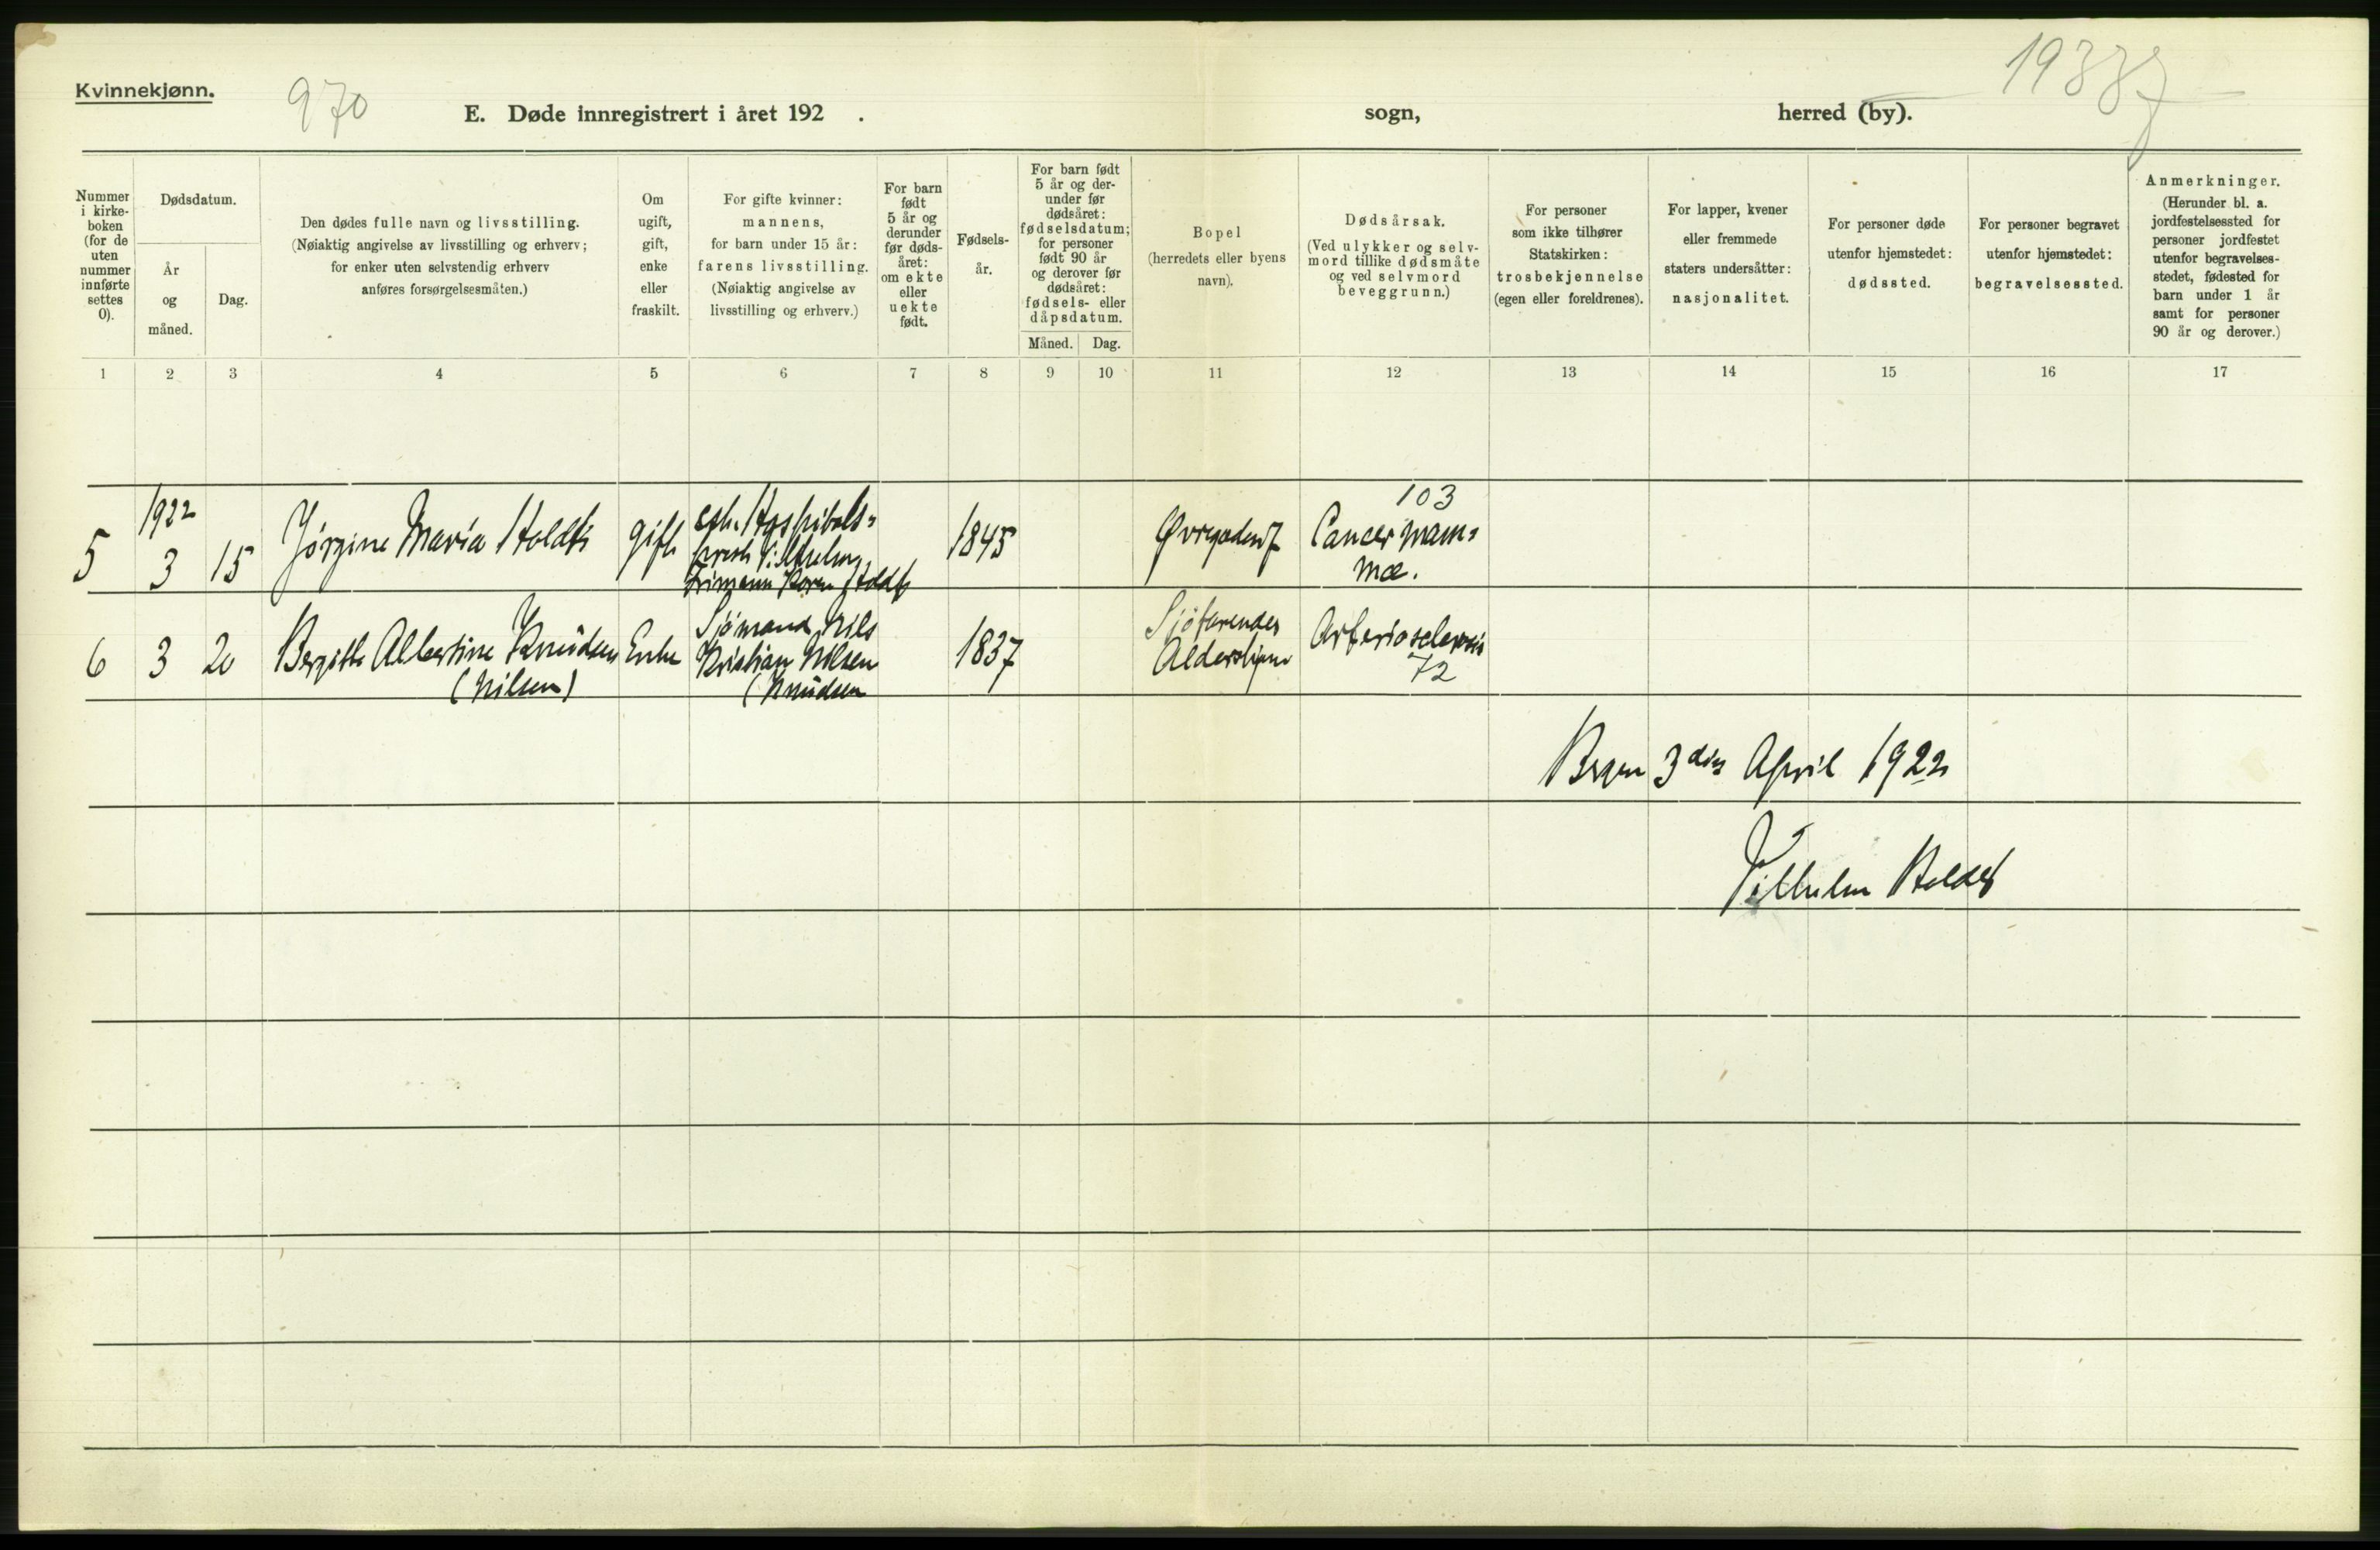 Kvinnekjønn.
970
19337
E. Døde innregistrert i året 192 . sogn, herred (by).
Nummer i kirke- boken (for de uten nummer innførte settes 0).
Dødsdatum.
År og måned.
Dag.
Den dødes fulle navn og livsstilling.
(Nøiaktig angivelse av livsstilling og erhverv;
for enker uten selvstendig erhverv
anføres forsørgelsesmåten.)
Om ugift, gift, enke eller fraskilt.
For gifte kvinner:
mannens,
for barn under 15 år:
farens livsstilling.
(Nøiaktig angivelse av
livsstilling og erhverv.)
For barn født 5 år og derunder før døds- året: om ekte eller uekte født.
Fødsels- år.
For barn født
5 år og der-
under før
dødsåret:
fødselsdatum;
for personer
født 90 år
og derover før
dødsåret:
fødsels- eller
dåpsdatum.
Måned. Dag.
Bopel
(herredets eller byens
navn).
Dødsårsak.
(Ved ulykker og selv-
mord tillike dødsmåte
og ved selvmord
beveggrunn.)
For personer
som ikke tilhører
Statskirken:
trosbekjennelse
(egen eller foreldrenes).
For lapper, kvener
eller fremmede
staters undersåtter:
nasjonalitet.
For personer døde
utenfor hjemstedet:
dødssted.
For personer begravet
utenfor hjemstedet:
begravelsessted.
Anmerkninger.
(Herunder bl. a.
jordfestelsessted for
personer jordfestet
utenfor begravelses-
stedet, fødested for
barn under 1 år
samt for personer
90 år og derover.)
1 2 3 4 5 6 7 8 9 10 11 12 13 14 15 16 17
1922
5 3 15 Jørgine Maria Holdt gift
Hospitals-
prest Vilhelm
Frimann Koren Holdt
1845
Øvregaden 7
103
Cancer mam-
mæ.
6 3 20 Bergitte Albertine Knudsen
(Nilsen)
Enke
Sjømand Nils
Kristian Nilsen
(Knudsen
1837
Sjøfarendes
Aldershjem
Arteriosclerosis
72
Bergen 3die April 1922
Vilhelm Holdt